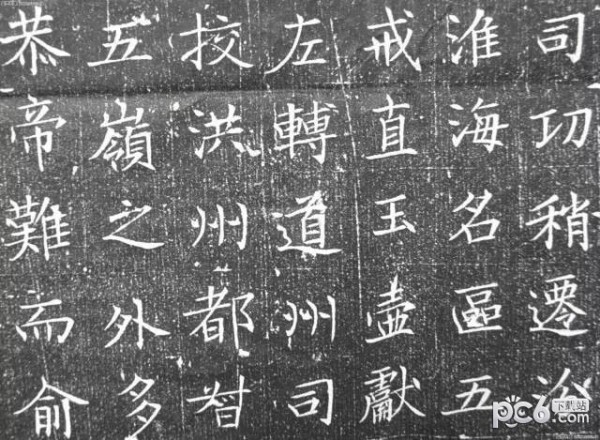 司功稍遷
淮海名區五
戒直玉壺獻
左轉道州司
挍洪州都督
五嶺之外多
恭帝難而俞
pc6下载站
.com